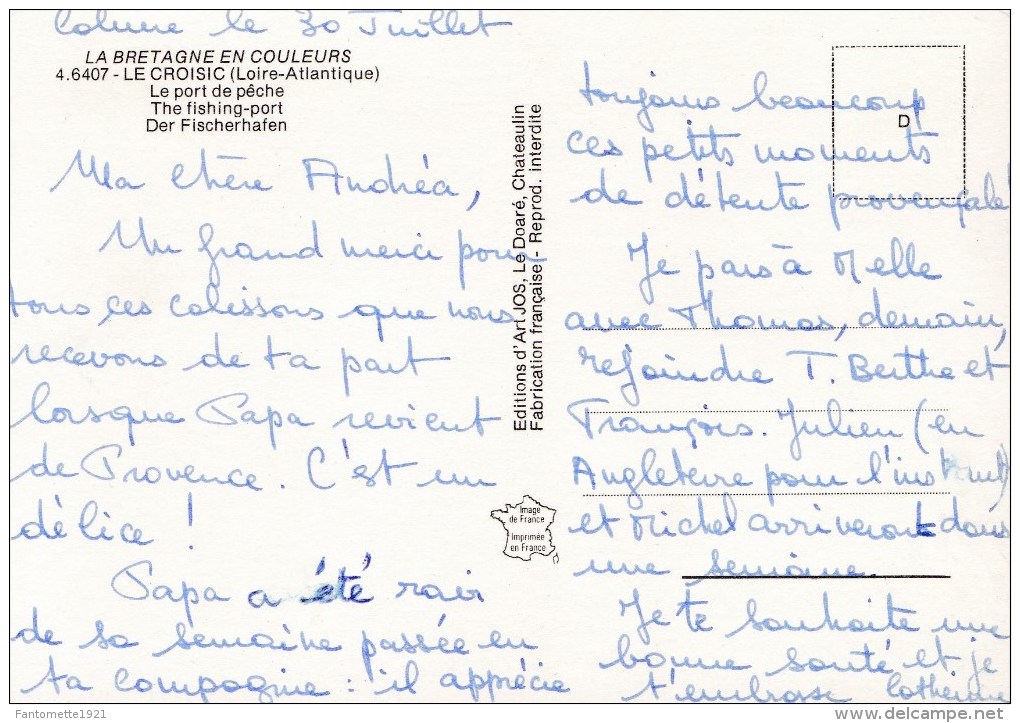 le 30 Juillet
LA BRETAGNE EN COULEURS
4.6407 - LE CROISIC (Loire-Atlantique)
Le port de pêche
The fishing-port
Der Fischerhafen
Ma chère Andréa,
Un grand merci pour
tous ces calissons que nous
recevons de ta part
lorsque Papa revient
de Provence. C'est un
délice !
Papa a été ravi
de sa semaine passée en
ta compagnie : il apprécie
Editions d'Art JOS, Le Doaré, Chateaulin
Fabrication française - Reprod. interdite
Image
de France
Imprimée
en France
D
toujours beaucoup
ces petits moments
de détente provençale!
Je pars à Melle
avec Thomas, demain,
rejoindre T. Berthe et
François. Julien (en
Angleterre pour l'instant)
et Michel arriveront dans
une semaine.
Je te souhaite une
bonne santé et je
t'embrasse Catherine
Fantomette1921
delcampe.net